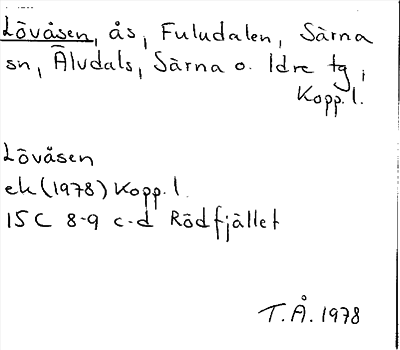 Lövåsen, ås, Fuludalen, Särna
sn, Älvdals, Särna o. Idre tg,
Kopp. l.
Lövåsen
ek (1978) Kopp. l.
15 C 8-9 c-d Rödfjället
T. Å. 1978